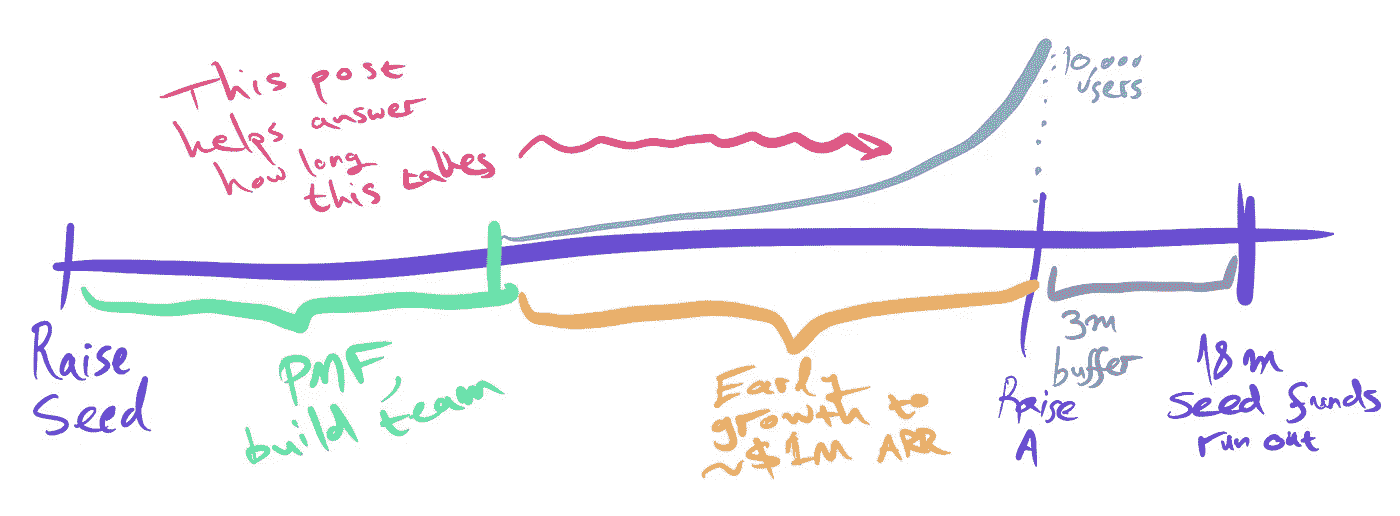 This post
helps answer
how long
this takes
10,000
users
Raise
Seed
PMF,
build team
Early
growth to
~$1M ARR
Raise
A
3m
buffer
18m
Seed funds
run out